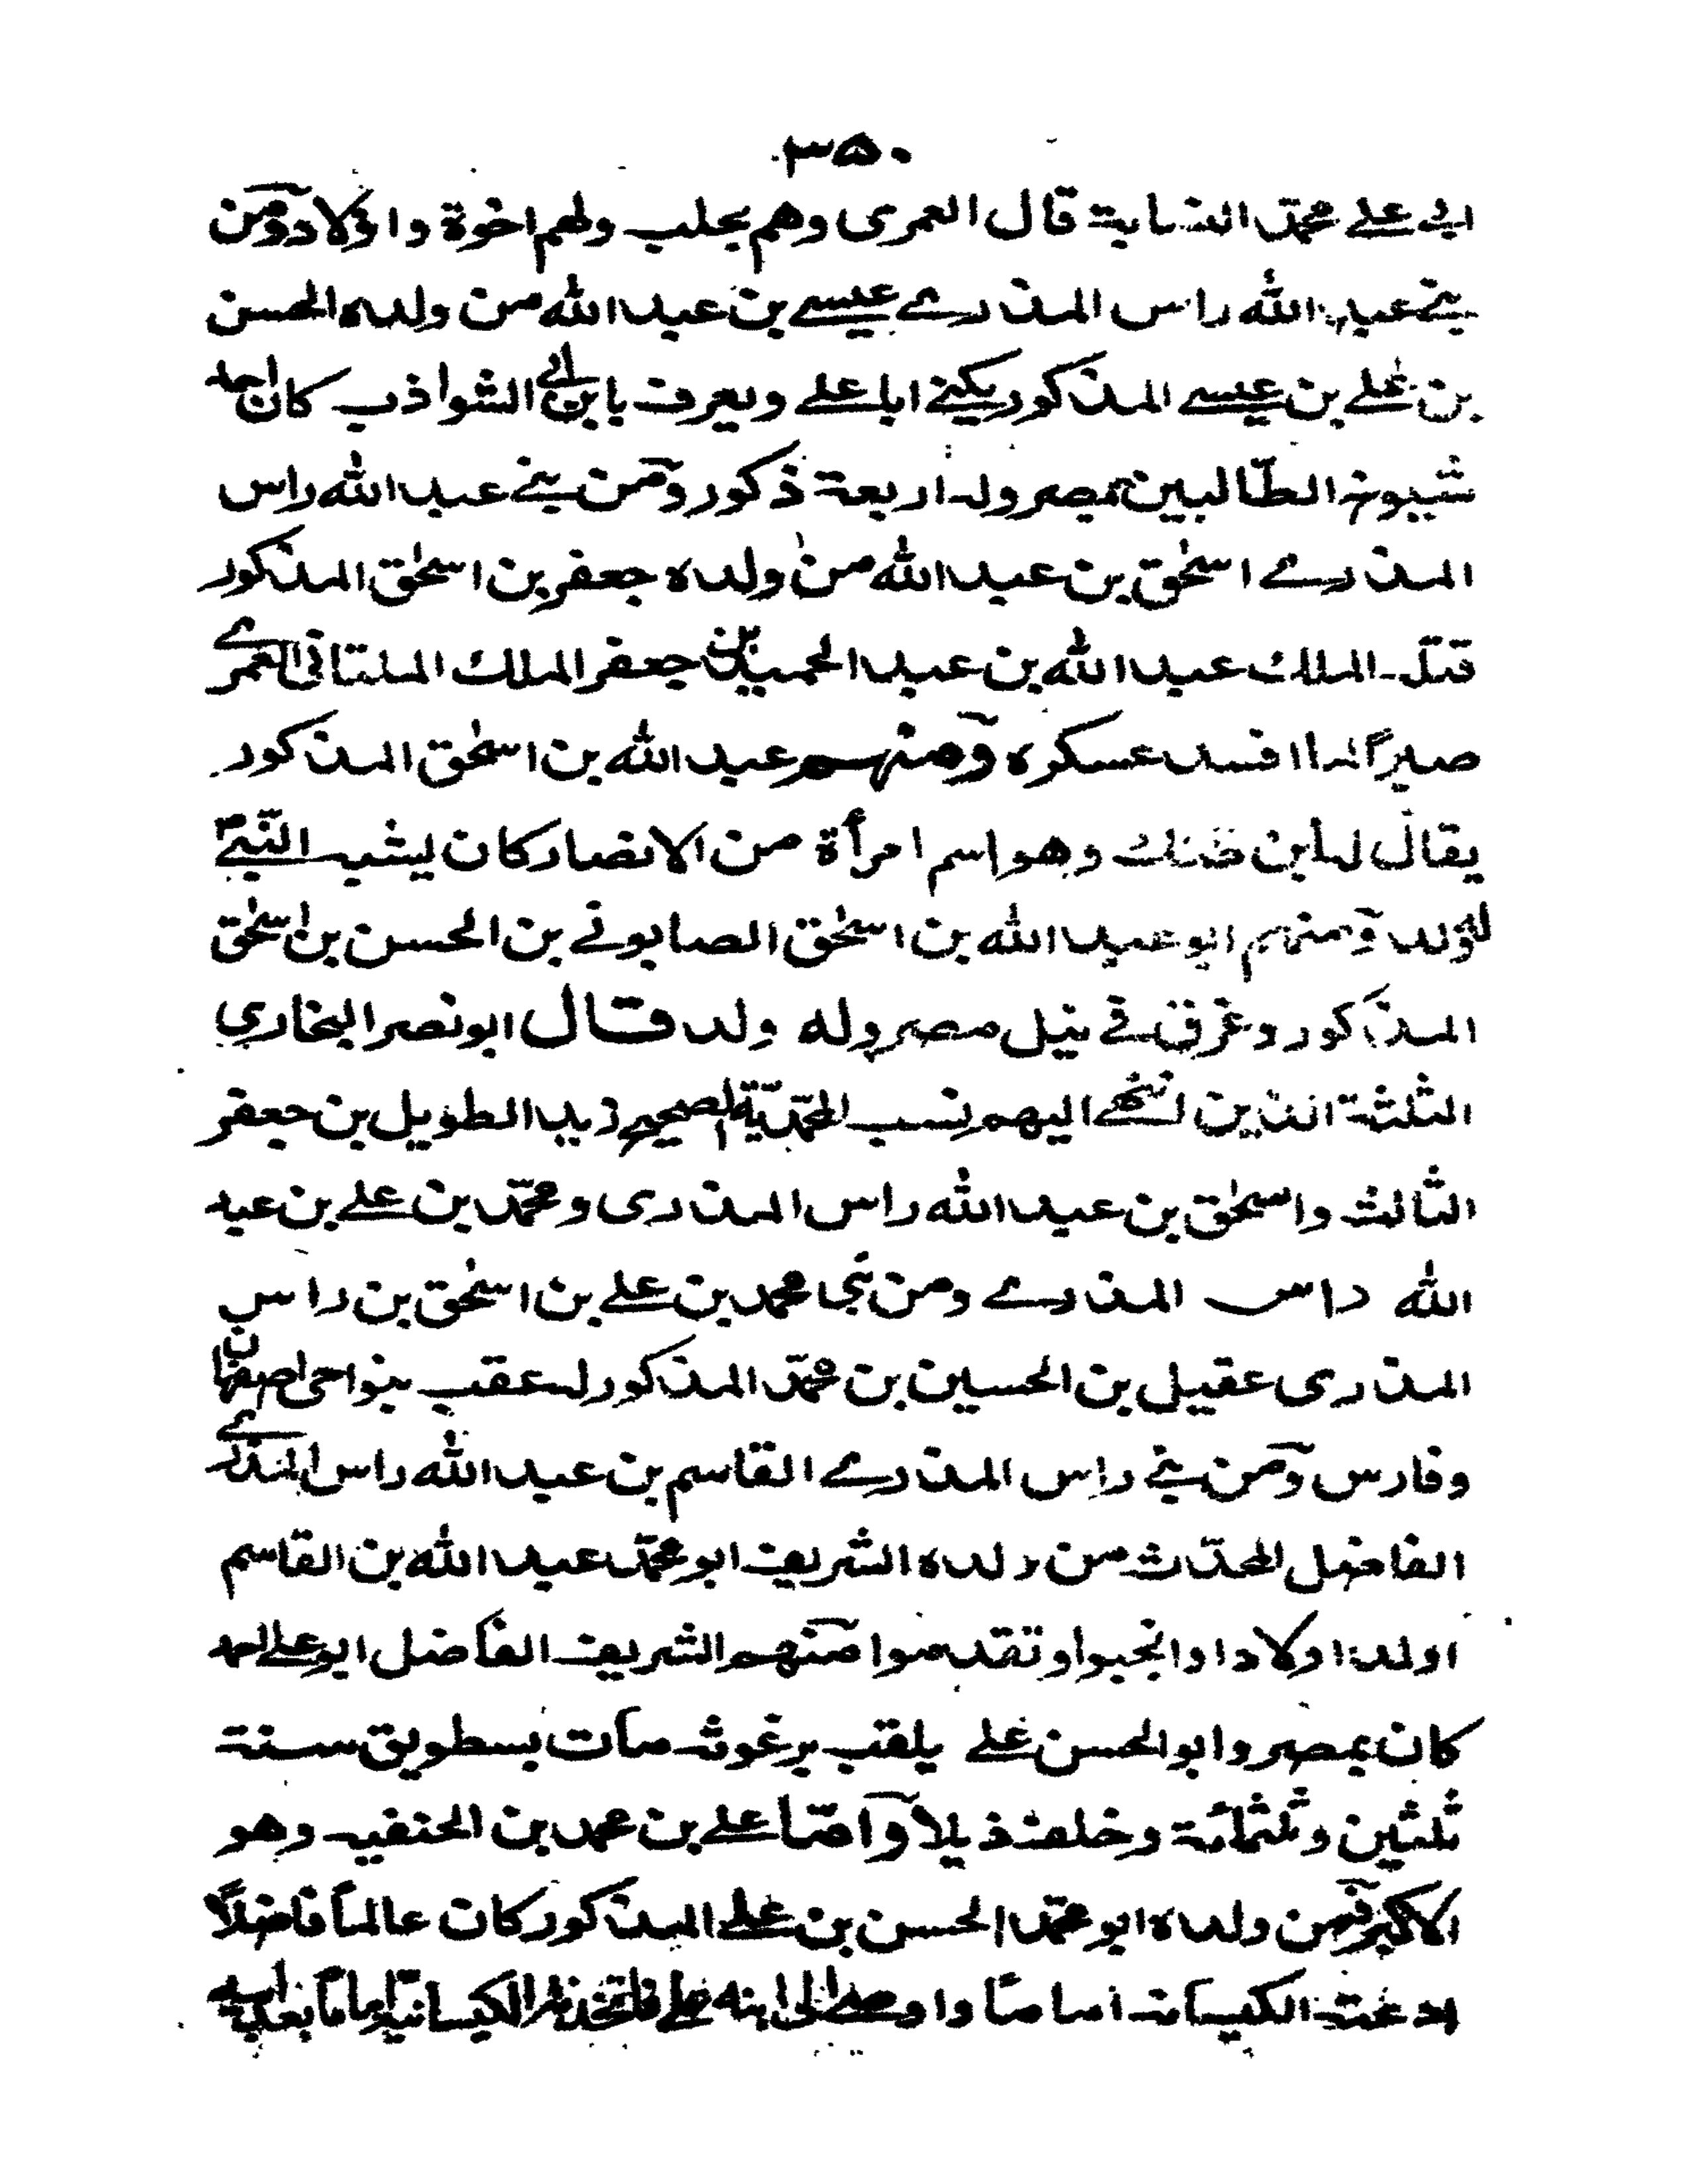 ٣٥٠
ابي علي محمّد النسابة قال العمرى وهم بحلب ولهم اخوة واولاد ومن
بني عبد الله راس المذري عيسى بن عبد الله من ولده الحسن
بن علي بن عيسى المذكور يكنى ابا علي ويعرف بابن ابي الشواذب كان احد
شيوخ الطّالبيين بمصر وله اربعة ذكور ومن بني عبد الله راس
المذري اسحٰق بن عبد الله من ولده جعفر بن اسحٰق المذكور
قتله الملك عبد الله بن عبد الحميد بن جعفر الملك الملتانى العمري
صبراً لما افسد عسكره ومنهم عبد الله بن اسحٰق المذكور
يقال له ابن ضنك وهو اسم امرأة من الانصار كان يشبه النّبيّ
له ولد ومنهم ابو عبد الله بن اسحٰق الصابوني بن الحسن بن اسحٰق
المذكور وغرق في نيل مصر وله ولد قال ابو نصر البخاري
الثلثة الذين انتهى اليهم نسب المحمّديّة الصحيح زيد الطويل بن جعفر
الثالث واسحٰق بن عبد الله راس المذرى ومحمّد بن علي بن عبد
الله راس المذري ومن بني محمد بن علي بن اسحٰق بن راس
المذرى عقيل بن الحسين بن محمّد المذكور له عقب بنواحى اصفهان
وفارس ومن بني راس المذري القاسم بن عبد الله راس المذري
الفاضل المحدّث من ولده الشريف ابو محمّد عبد الله بن القاسم
اولد اولادا وانجبوا وتقدموا منهم الشريف الفاضل ابو علي احمد
كان بمصر وابو الحسن علي يلقب برغوثه مات بسطويق سنة
ثلثين وثلثمائة وخلف ذيلا وامّا علي بن محمد بن الحنفيه وهو
الاكبر فمن ولده ابو محمّد الحسن بن علي المذكور كان عالماً فاضلاً
ادعته الكيسانية اماما واوصى الى ابنه علي فاتخذته الكيسانية اماما بعد ابيه